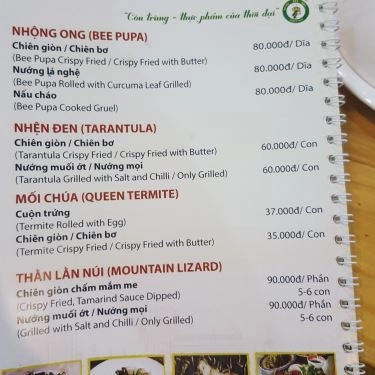 "Côn trùng - thực phẩm của thời đại"
NHỘNG ONG (BEE PUPA)
Chiên giòn / Chiên bơ 80.000đ/ Dĩa
(Bee Pupa Crispy Fried / Crispy Fried with Butter)
Nướng lá nghệ 80.000đ/ Dĩa
(Bee Pupa Rolled with Curcuma Leaf Grilled)
Nấu cháo 80.000đ/ Dĩa
(Bee Pupa Cooked Gruel)
NHỆN ĐEN (TARANTULA)
Chiên giòn / Chiên bơ 60.000đ/ Con
(Tarantula Crispy Fried / Crispy Fried with Butter)
Nướng muối ớt / Nướng mọi 60.000đ/ Con
(Tarantula Grilled with Salt and Chilli / Only Grilled)
MỐI CHÚA (QUEEN TERMITE)
Cuộn trứng 37.000đ/ con
(Termite Rolled with Egg)
Chiên giòn / Chiên bơ 35.000đ/ Con
(Termite Crispy Fried / Crispy Fried with Butter)
THẰN LẰN NÚI (MOUNTAIN LIZARD)
Chiên giòn chấm mắm me 90.000đ/ Phần
(Crispy Fried, Tamarind Sauce Dipped) 5-6 con
Nướng muối ớt / Nướng mọi 90.000đ/ Phần
(Grilled with Salt and Chilli / Only Grilled) 5-6 con